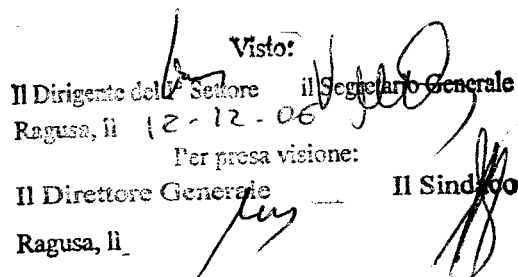 Visto:
Il Dirigente del I° Settore il Segretario Generale
Ragusa, lì 12-12-06
Per presa visione:
Il Direttore Generale Il Sindaco
Ragusa, lì